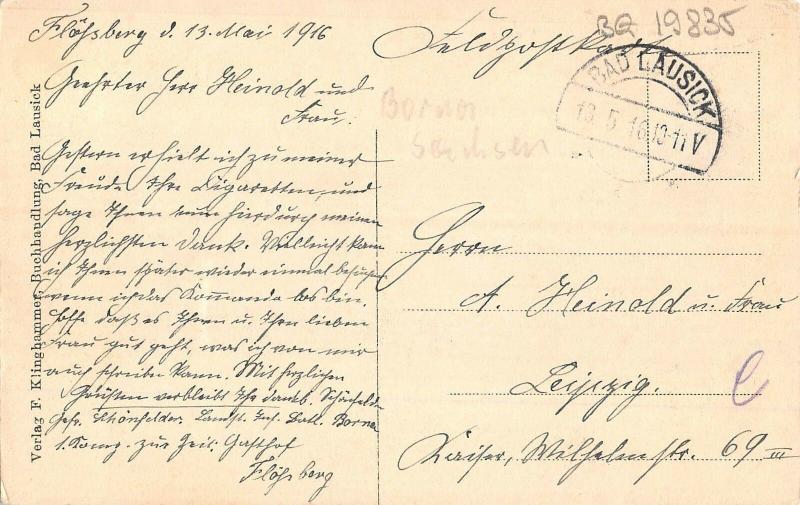 Flößberg d. 13. Mai 1916
Geehrter Herr Heinold und
Frau.
Gestern erhielt ich zu meiner
Freude Ihre Zigaretten, und
sage Ihnen nun hierdurch meinen
herzlichsten Dank. Vielleicht kann
ich Ihnen später wieder einmal besuchen
wenn ich das Kommando los bin.
Hoffe daß es Ihnen u. Ihrer lieben
Frau gut geht, was ich von mir
auch schreiben kann. Mit herzlichen
Grüßen verbleibt Ihr dankb. Schönfelder
Gefr. Schönfelder. Landst. Inf. Batl. Borna
1. Komp. zur Zeit. Gasthof
Flößberg
Verlag F. Klinghammer, Buchhandlung, Bad Lausick
Feldpostkarte
BQ 19835
BAD LAUSICK
13 5 16 10-11 V
Borna
Sachsen
Herrn
A. Heinold u. Frau
Leipzig.
Kaiser, Wilhelmstr. 69 III